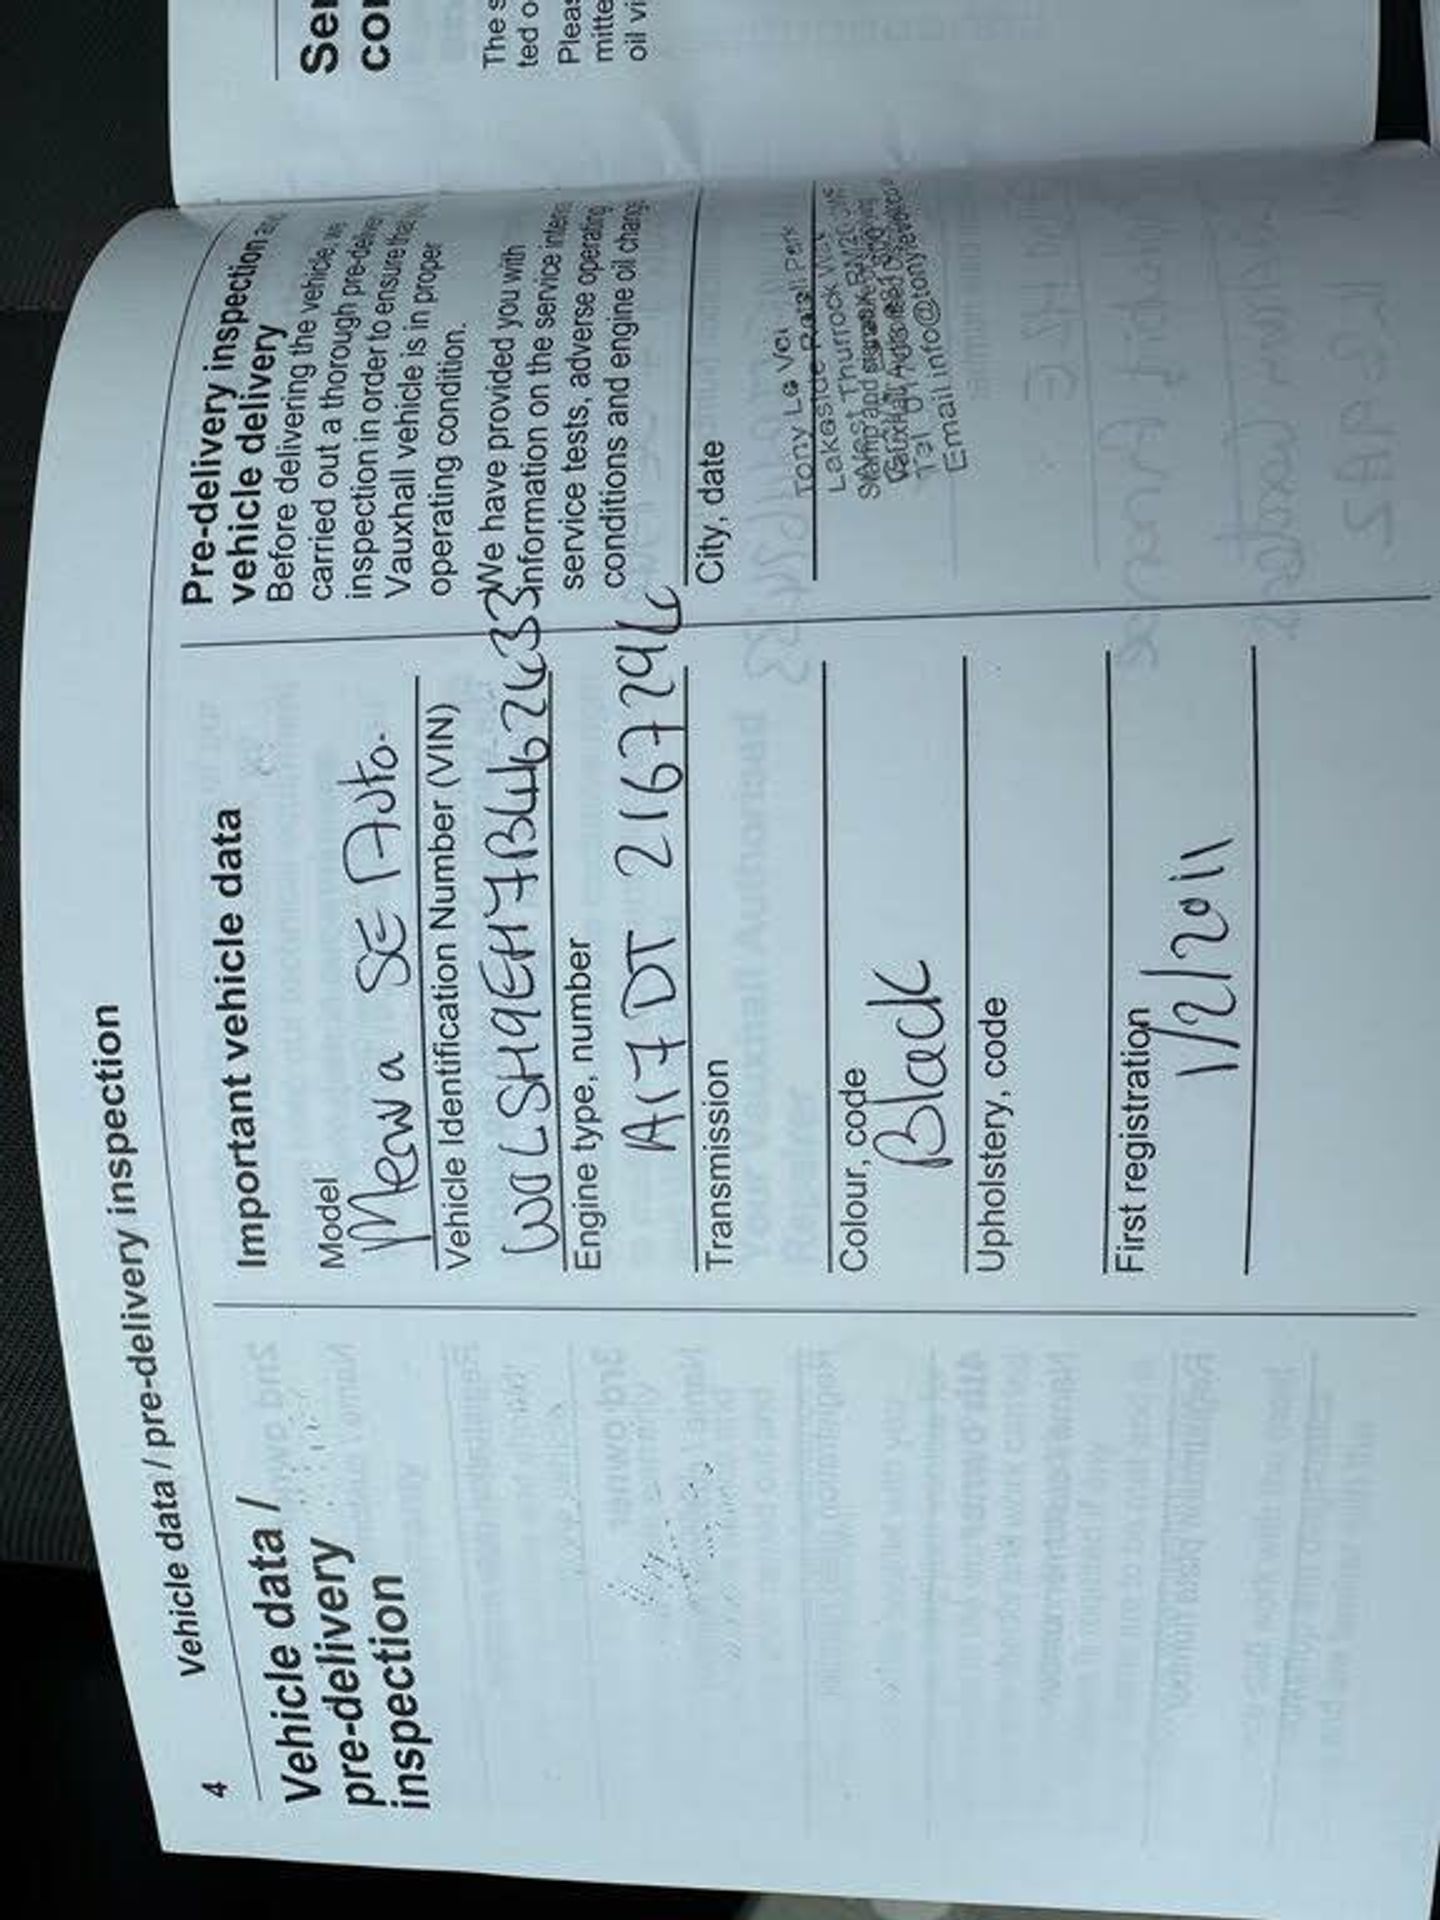 4
Vehicle data / pre-delivery inspection
Vehicle data /
pre-delivery
inspection
Important vehicle data
Model
Meriva SE Auto.
Vehicle Identification Number (VIN)
Engine type, number
A17DT
Transmission
Colour, code
Black
Upholstery, code
First registration
1/2/2011
Pre-delivery inspection
vehicle delivery
Before delivering the vehicle, we
carried out a thorough
inspection in order to ensure that
Vauxhall vehicle is in proper
operating condition.
We have provided you with
information on the service
service tests, adverse operating
conditions and engine oil
City, date
Tony Le Voi
Lakeside Retail Park
Thurrock Way
Email info@
The
ted
mitte